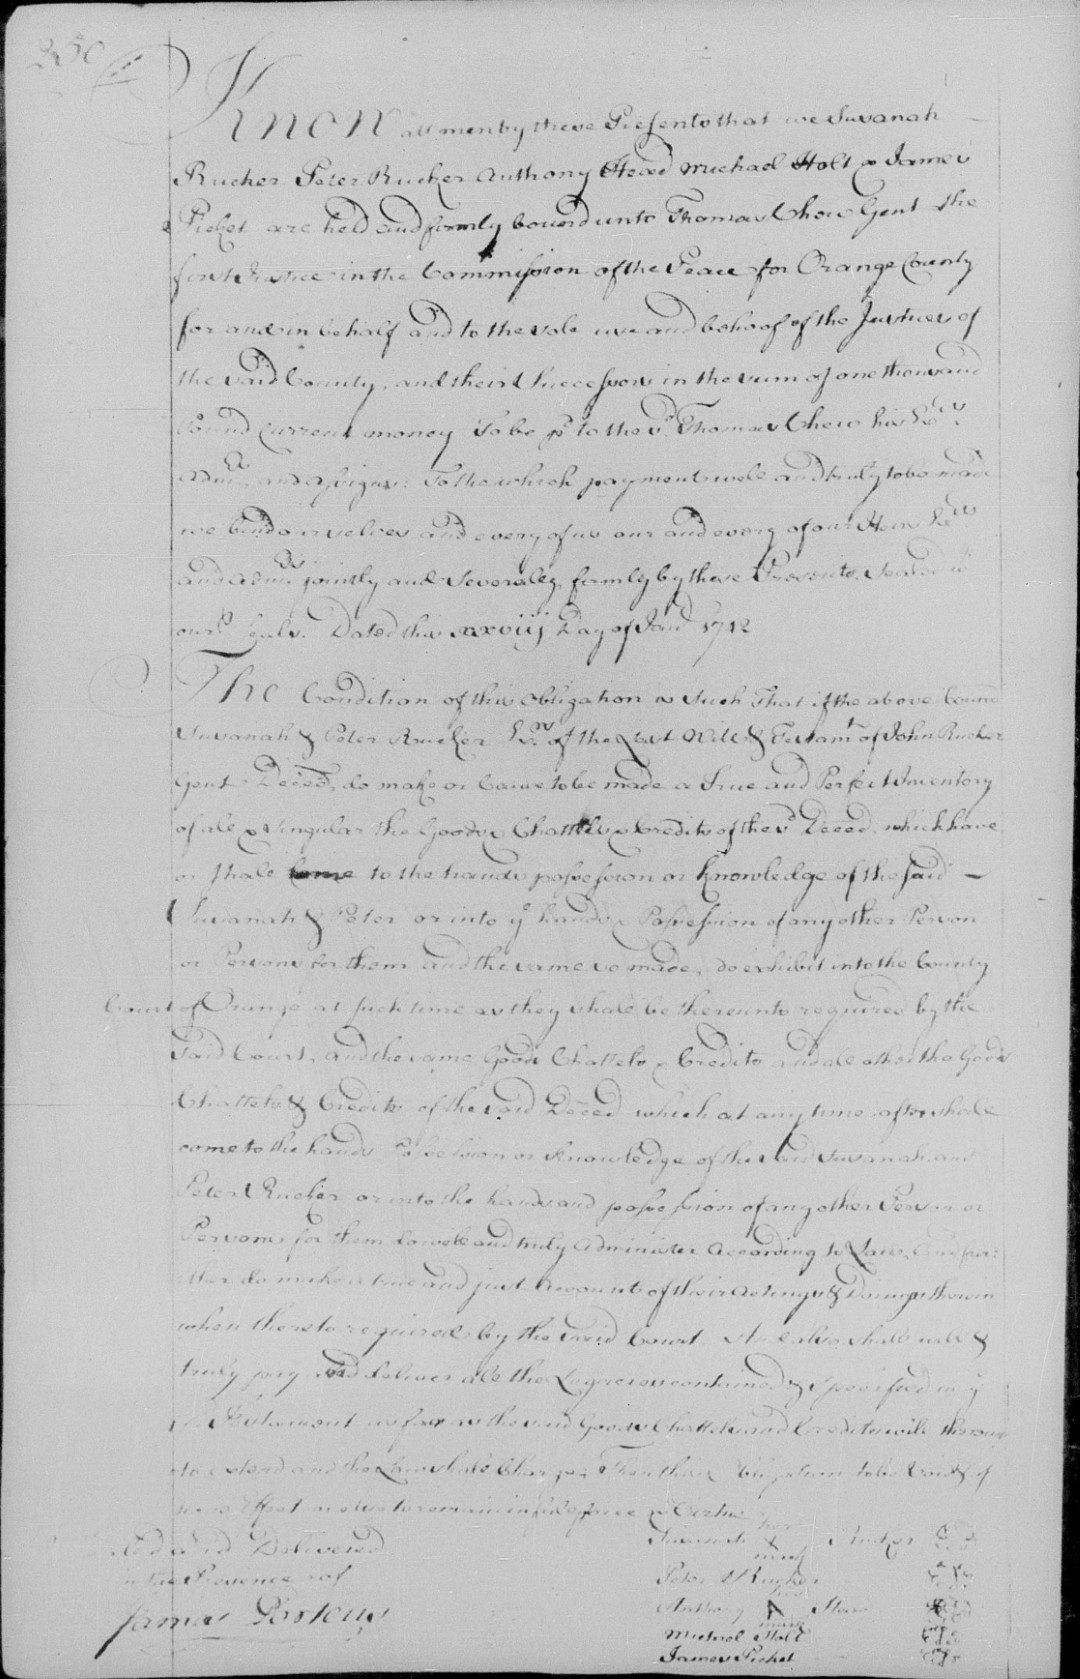 Know all men by these Presents that we Susanah
Rucker Peter Rucker Anthony Head Michael Holt & James
Picket are held and firmly bound unto Thomas Chew Gent the
first Justice in the Commission of the Peace for Orange County
for and in behalf and to the sole use and behoof of the Justices of
the said County, and their Successors in the sum of one thousand
Pound Current money To be pd to the sd Thomas Chew his Exrs
Admrs and Assigns: To the which payment well and truly to be made
we bind ourselves and every of us our and every of our Heirs Exrs
and Admrs jointly and Severally firmly by these Presents Sealed
our Seals. Dated this xxviij Day of Jan 1742
The Condition of this Obligation is Such That if the above bound
Susanah & Peter Rucker Exrs of the Last Will & Testamt of John Rucker
Gent Deced, do make or Cause to be made a True and Perfect Inventory
of all & singular the Goods & Chattels & Credits of the sd Deced, which have
or shall come to the hands possession or knowledge of the said
Susanah & Peter or into ye hands & Possession of any other Person
or Persons for them and the same so made, do exhibit into the County
Court of Orange at such time as they shall be thereunto required by the
said Court, and the same Goods Chattels & Credits and all other the Goods
Chattels & Credits of the said Deced which at any time after shall
come to the hands Possession or knowledge of the said Susanah and
Peter Rucker or into the hands and possession of any other Person or
Persons for them do well and truly Administer according to Law, and fur:
ther do make a true and just Account of their Actings & Doings therein
when thereto required by the said Court And also shall well &
truly pay and deliver all the Legacies contained & specified in ye
sd Testament as far as the said Goods Chattels and Credits will thereunto
extend and the Law shall Charge Then this Obligation to be Void & of
none Effect or else to remain in full force & Virtue
her
Susanah Rucker
mark
and Delivered
Peter Rucker
in the Presence of
Anthony Head
mark
James Porteus
Michael Holt
James Picket